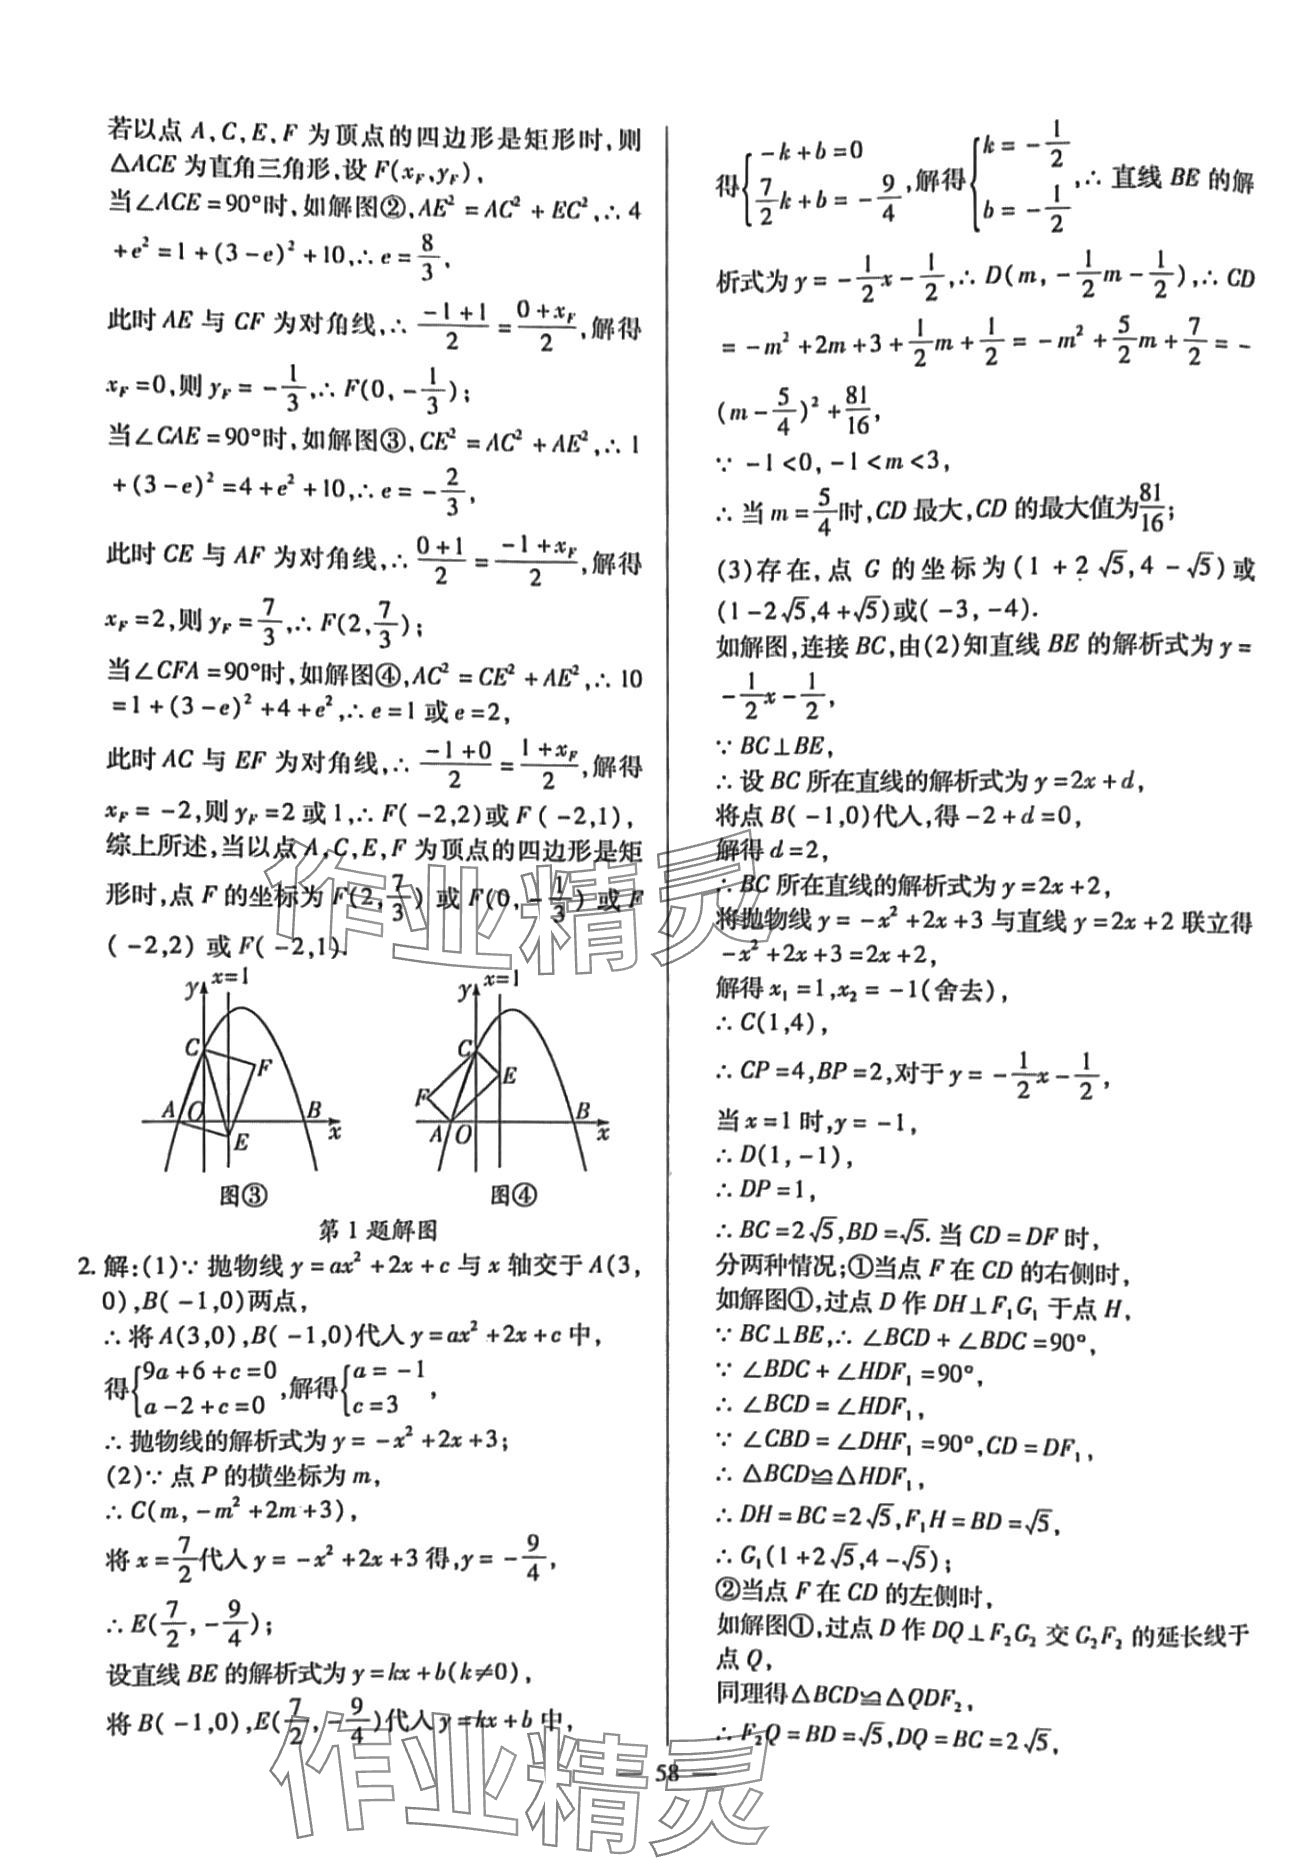 若以点 A,C,E,F 为顶点的四边形是矩形时,则
△ACE 为直角三角形,设 F(x_F,y_F),
当∠ACE=90°时,如解图②,AE²=AC²+EC²,∴4
+e²=1+(3-e)²+10,∴e=8/3,
此时 AE 与 CF 为对角线,∴(-1+1)/2=(0+x_F)/2,解得
x_F=0,则 y_F=-1/3,∴F(0,-1/3);
当∠CAE=90°时,如解图③,CE²=AC²+AE²,∴1
+(3-e)²=4+e²+10,∴e=-2/3,
此时 CE 与 AF 为对角线,∴(0+1)/2=(-1+x_F)/2,解得
x_F=2,则 y_F=7/3,∴F(2,7/3);
当∠CFA=90°时,如解图④,AC²=CE²+AE²,∴10
=1+(3-e)²+4+e²,∴e=1 或 e=2,
此时 AC 与 EF 为对角线,∴(-1+0)/2=(1+x_F)/2,解得
x_F=-2,则 y_F=2 或 1,∴F(-2,2)或 F(-2,1),
综上所述,当以点 A,C,E,F 为顶点的四边形是矩
形时,点 F 的坐标为 F(2,7/3) 或 F(0,-1/3) 或 F
(-2,2) 或 F(-2,1).
y x=1 C F A O B x E
图③
y x=1 C E F A O B x
图④
第 1 题解图
2. 解:(1)∵抛物线 y=ax²+2x+c 与 x 轴交于 A(3,
0),B(-1,0)两点,
∴将 A(3,0),B(-1,0)代入 y=ax²+2x+c 中,
得{9a+6+c=0 a-2+c=0,解得{a=-1 c=3,
∴抛物线的解析式为 y=-x²+2x+3;
(2)∵点 P 的横坐标为 m,
∴C(m,-m²+2m+3),
将 x=7/2代入 y=-x²+2x+3 得,y=-9/4,
∴E(7/2,-9/4);
设直线 BE 的解析式为 y=kx+b(k≠0),
将 B(-1,0),E(7/2,-9/4)代入 y=kx+b 中,
得{-k+b=0 7/2k+b=-9/4,解得{k=-1/2 b=-1/2,∴直线 BE 的解
析式为 y=-1/2x-1/2,∴D(m,-1/2m-1/2),∴CD
=-m²+2m+3+1/2m+1/2=-m²+5/2m+7/2=-
(m-5/4)²+81/16,
∵-1<0,-1<m<3,
∴当 m=5/4时,CD 最大,CD 的最大值为81/16;
(3)存在,点 G 的坐标为(1+2√5,4-√5)或
(1-2√5,4+√5)或(-3,-4).
如解图,连接 BC,由(2)知直线 BE 的解析式为 y=
-1/2x-1/2,
∵BC⊥BE,
∴设 BC 所在直线的解析式为 y=2x+d,
将点 B(-1,0)代入,得-2+d=0,
解得 d=2,
∴BC 所在直线的解析式为 y=2x+2,
将抛物线 y=-x²+2x+3 与直线 y=2x+2 联立得
-x²+2x+3=2x+2,
解得 x₁=1,x₂=-1(舍去),
∴C(1,4),
∴CP=4,BP=2,对于 y=-1/2x-1/2,
当 x=1 时,y=-1,
∴D(1,-1),
∴DP=1,
∴BC=2√5,BD=√5. 当 CD=DF 时,
分两种情况;①当点 F 在 CD 的右侧时,
如解图①,过点 D 作 DH⊥F₁G₁ 于点 H,
∵BC⊥BE,∴∠BCD+∠BDC=90°,
∵∠BDC+∠HDF₁=90°,
∴∠BCD=∠HDF₁,
∵∠CBD=∠DHF₁=90°,CD=DF₁,
∴△BCD≌△HDF₁,
∴DH=BC=2√5,F₁H=BD=√5,
∴G₁(1+2√5,4-√5);
②当点 F 在 CD 的左侧时,
如解图①,过点 D 作 DQ⊥F₂G₂ 交 G₂F₂ 的延长线于
点 Q,
同理得△BCD≌△QDF₂,
∴F₂Q=BD=√5,DQ=BC=2√5,
— 58 —
作业精灵
作业精灵